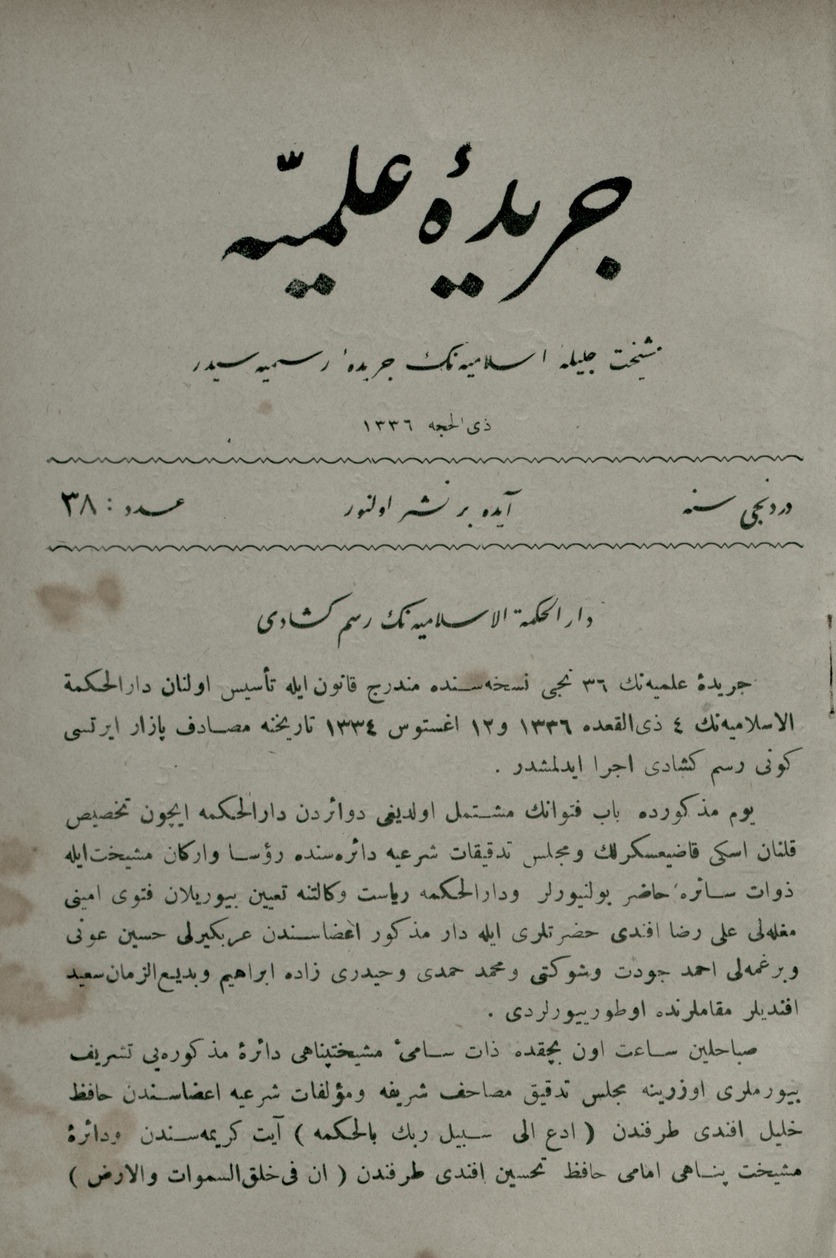 جريدۀ علميّه
مشيخت جليلۀ اسلاميه‌نك جريدۀ رسميه‌سيدر
ذى الحجه ١٣٣٦
دردنجى سنه
آيده بر نشر اولنور
عدد : ٣٨
دار الحكمة الاسلاميه‌نك رسم كشادى
جريدۀ علميه‌نك ٣٦ نجى نسخه‌سنده مندرج قانون ايله تأسيس اولنان دارالحكمة
الاسلاميه‌نك ٤ ذى‌القعده ١٣٣٦ و١٢ اغستوس ١٣٣٤ تاريخنه مصادف پازار ايرتسى
كونى رسم كشادى اجرا ايدلمشدر .
يوم مذكورده باب فتوانك مشتمل اولديغى دوائردن دارالحكمه ايچون تخصيص
قلنان اسكى قاضيعسكرلك ومجلس تدقيقات شرعيه دائره‌سنده رؤسا واركان مشيخت‌ايله
ذوات سائره حاضر بولنيورلر ودارالحكمه رياست وكالتنه تعيين بيوريلان فتوى امينى
مغله‌لى على رضا افندى حضرتلرى ايله دار مذكور اعضاسندن عربكيرلى حسين عونى
وبرغمه‌لى احمد جودت وشوكتى ومحمد حمدى وحيدرى زاده ابراهيم وبديع‌الزمان‌سعيد
افنديلر مقاملرنده اوطورييورلردى .
صباحلين ساعت اون بچقده ذات سامئ مشيختپناهى دائرۀ مذكوره‌يى تشريف
بيورملرى اوزرينه مجلس تدقيق مصاحف شريفه ومؤلفات شرعيه اعضاسندن حافظ
خليل افندى طرفندن ( ادع الى سبيل ربك بالحكمه ) آيت كريمه‌سندن ودائرۀ
مشيخت پناهى امامى حافظ تحسين افندى طرفندن ( ان فى‌خلق‌السموات والارض )